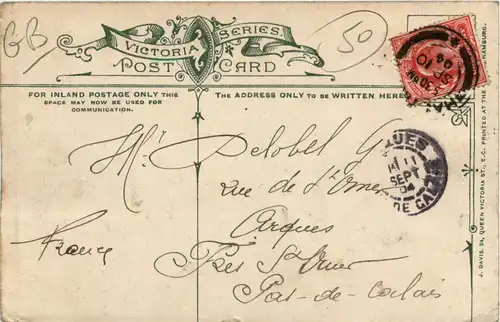 GB
50
VICTORIA SERIES
POST CARD
FOR INLAND POSTAGE ONLY THIS
SPACE MAY NOW BE USED FOR
COMMUNICATION.
THE ADDRESS ONLY TO BE WRITTEN HERE
Mr Delobel G
rue de St Omer
Arques
Près St Omer
Pas-de-Calais
France
QUES
11
SEPT
04
DE CALAIS
J. DAVIS, 24, QUEEN VICTORIA ST., E.C. PRINTED AT THE HAMBURG.